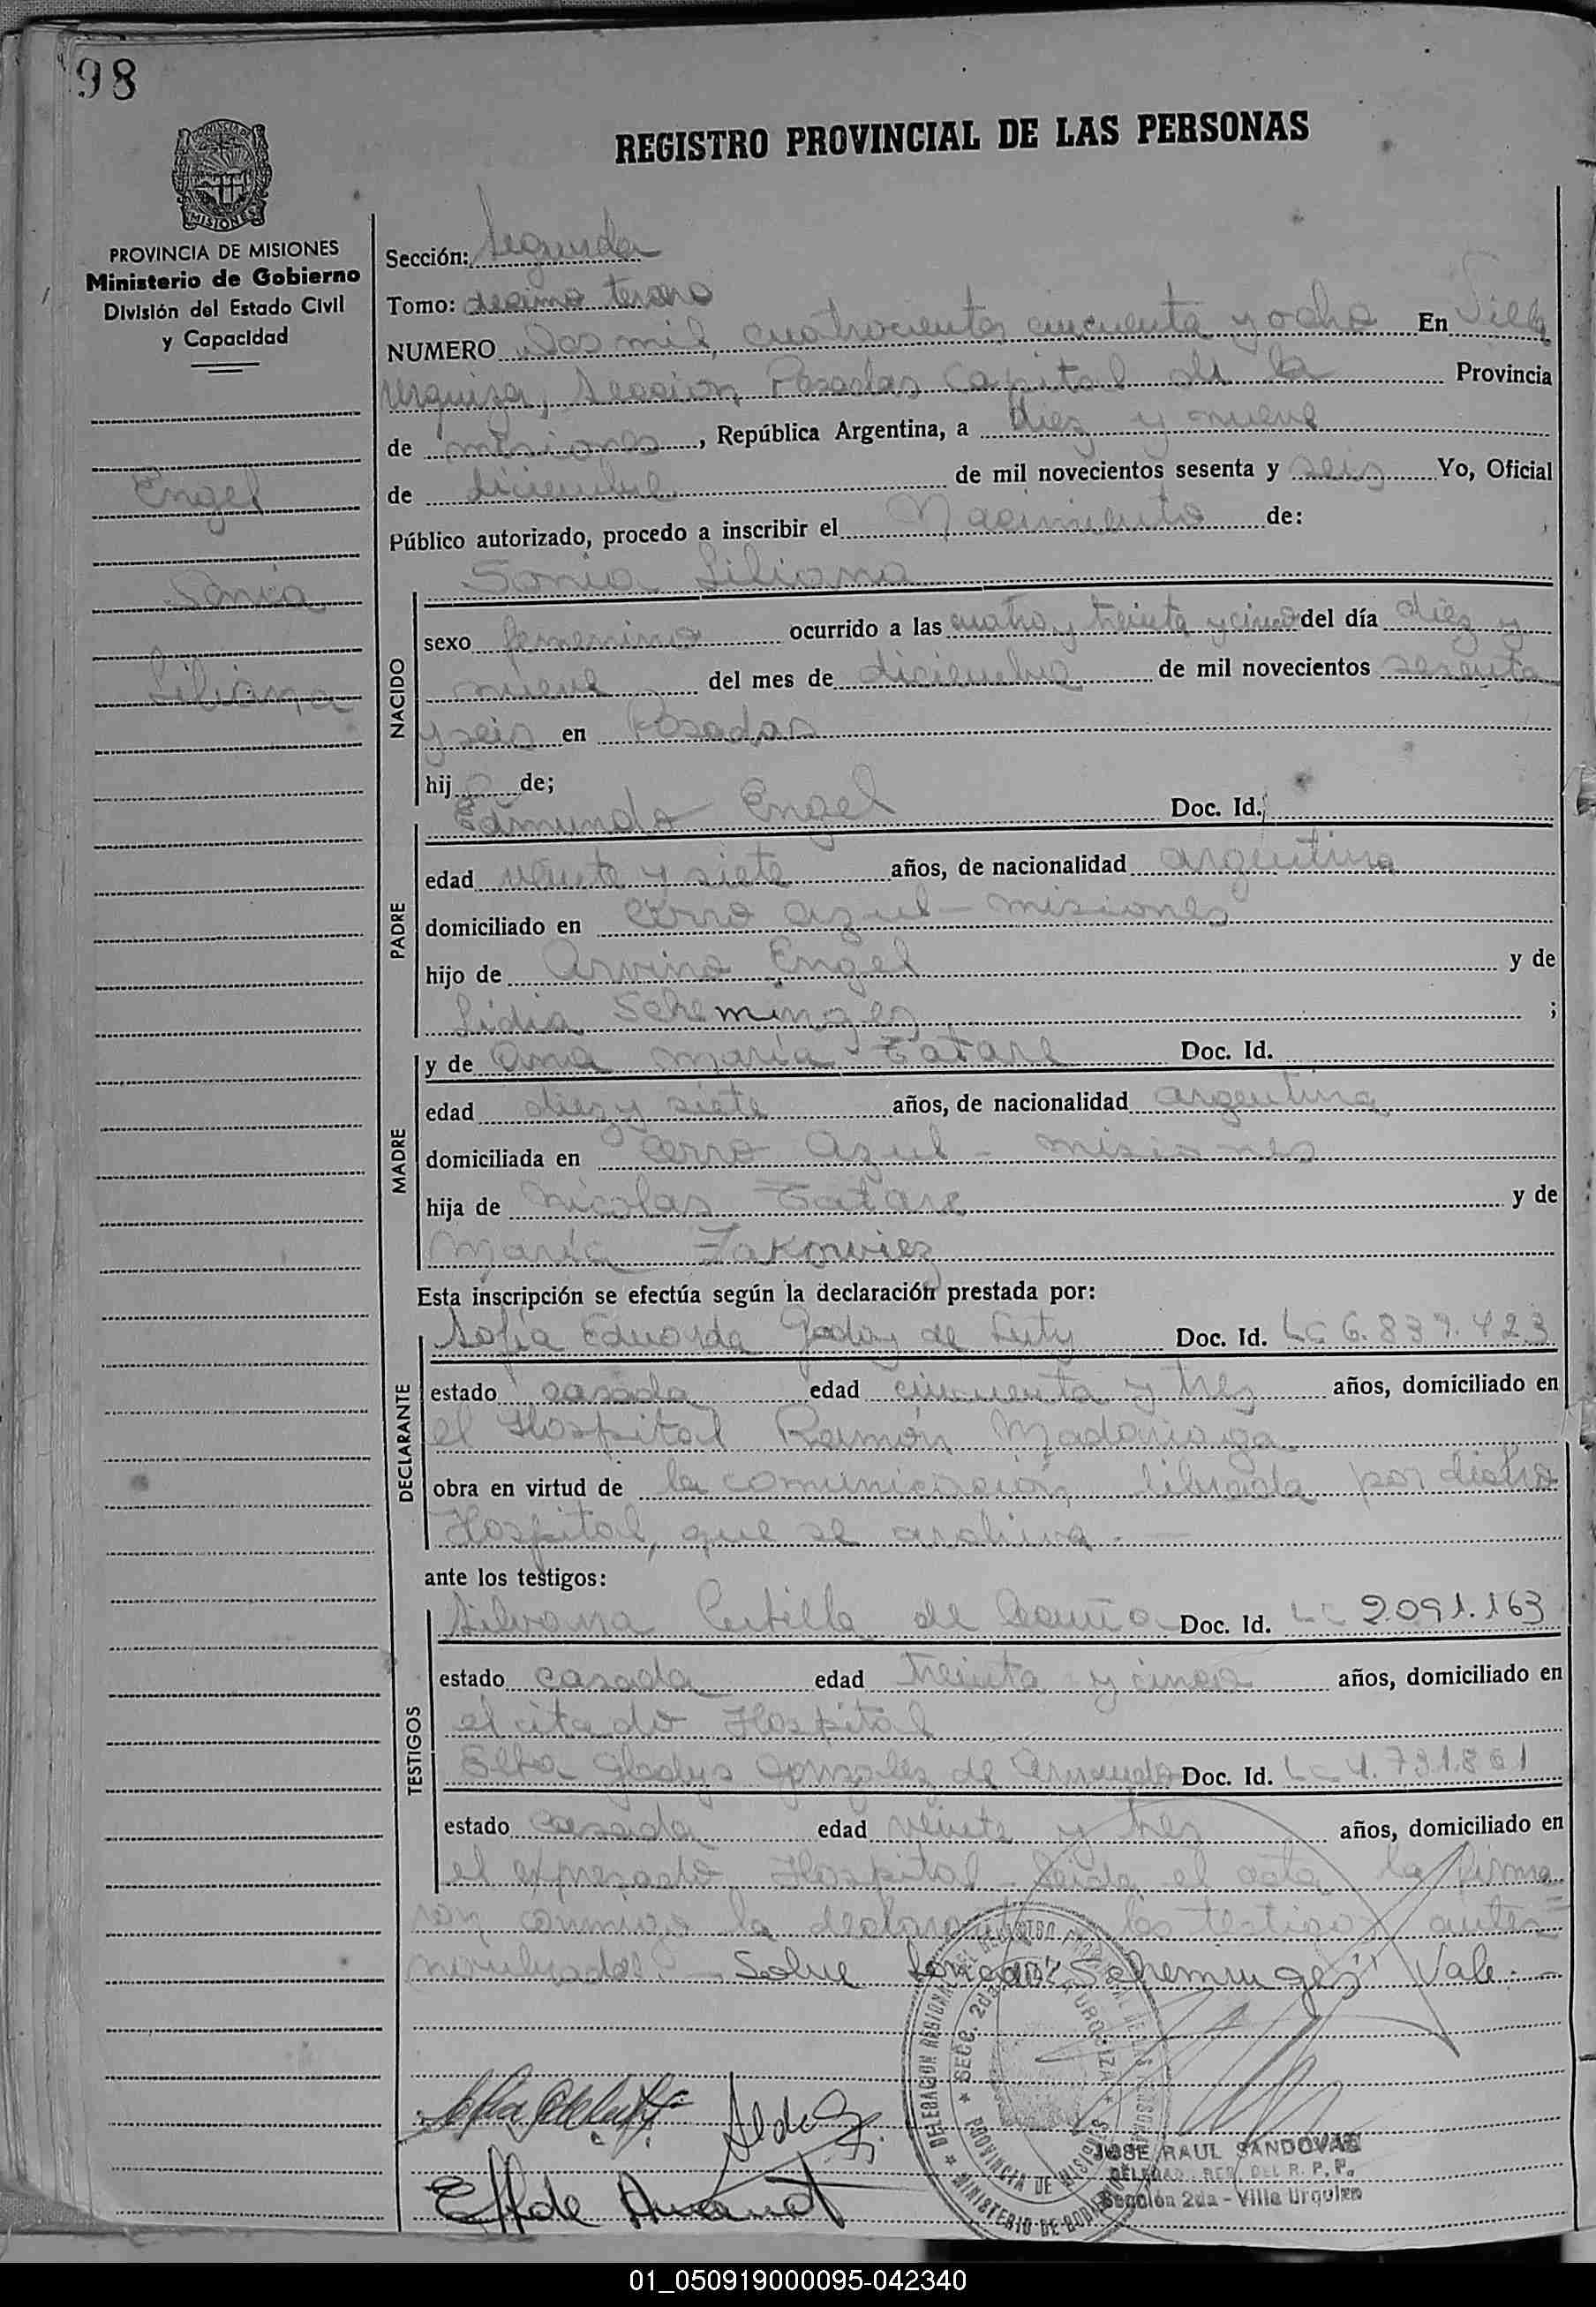 98
REGISTRO PROVINCIAL DE LAS PERSONAS
MISIONES
PROVINCIA DE MISIONES
Ministerio de Gobierno
División del Estado Civil
y Capacidad
Engel
Sonia
Liliana
Sección: Segunda
Tomo: decimo tercero
NUMERO Dos mil, cuatrocientos cincuenta y ocho En Villa
Urquiza, Sección Posadas Capital de la Provincia
de misiones, República Argentina, a diez y nueve
de diciembre de mil novecientos sesenta y seis Yo, Oficial
Público autorizado, procedo a inscribir el Nacimiento de:
Sonia Liliana
NACIDO
sexo femenino ocurrido a las cuatro y treinta y cinco del día diez y
nueve del mes de diciembre de mil novecientos sesenta
y seis en Posadas
hij a de;
Edmundo Engel Doc. Id.
PADRE
edad veinte y siete años, de nacionalidad argentina
domiciliado en Cerro Azul - misiones
hijo de Arvino Engel y de
Lidia Scheminges ;
y de Ana María Tatare Doc. Id.
MADRE
edad diez y siete años, de nacionalidad argentina
domiciliada en Cerro Azul - misiones
hija de Nicolas Tatare y de
María
Esta inscripción se efectúa según la declaración prestada por:
Sofia Eduarda Godoy de Luty Doc. Id. LC 6.839.423
DECLARANTE
estado casada edad cincuenta y tres años, domiciliado en
el Hospital Ramón Madariaga
obra en virtud de la comunicación librada por dicho
Hospital, que se archiva. —
ante los testigos:
Silvana de Doc. Id. LC 2.091.163
TESTIGOS
estado casada edad treinta y cinco años, domiciliado en
el citado Hospital
Elba Gladys Gonzalez de Doc. Id. LC 4.731.861
estado casada edad veinte y tres años, domiciliado en
el expresado Hospital - Leida el acta la firma
ron conmigo la declarante los testigos antes
nombrados. — Sobre "Scheminges" Vale. —
DELEGACION REGIONAL DEL REGISTRO PROVINCIAL DE LAS PERSONAS
SECC. 2da URQUIZA
PROVINCIA DE MISIONES
MINISTERIO DE GOBIERNO
JOSE RAUL SANDOVAL
DEL R. P. P.
Sección 2da - Villa Urquiza
01_050919000095-042340